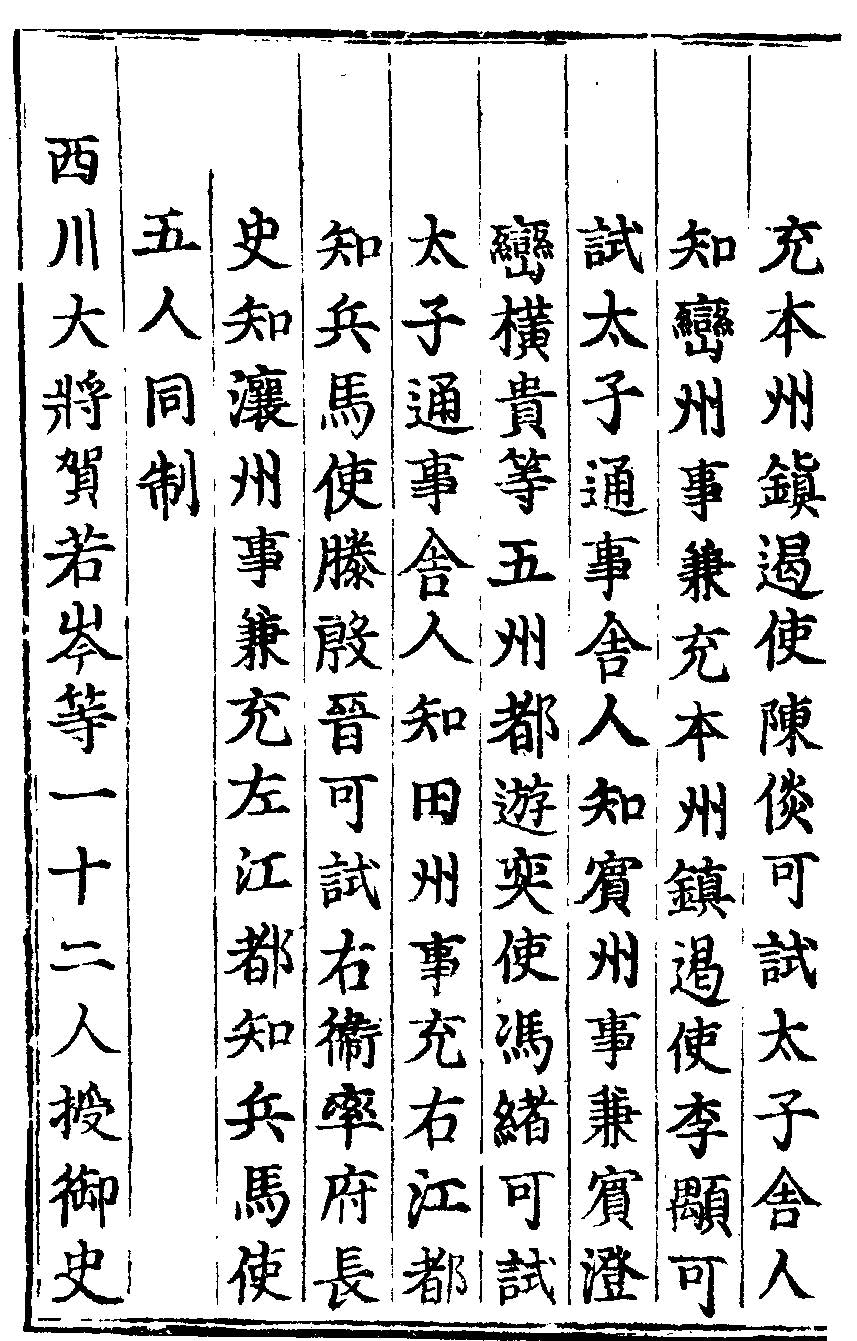 充本州鎮遏使陳倓可試太子舍人
知巒州事兼充本州鎮遏使李顒可
試太子通事舍人知賓州事兼賓澄
巒橫貴等五州都遊奕使馮緒可試
太子通事舍人知田州事充右江都
知兵馬使滕殷晉可試右衞率府長
史知瀼州事兼充左江都知兵馬使
五人同制
西川大將賀若岑等一十二人授御史